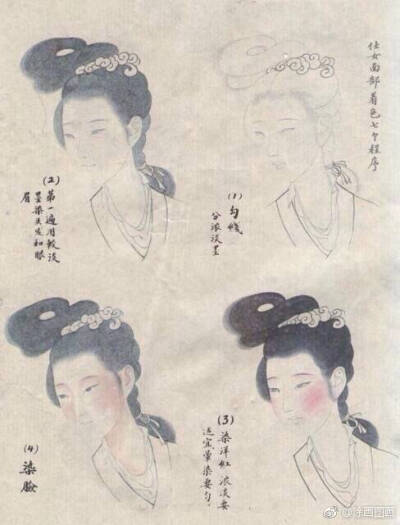 仕女面部着色七个程序
(1)
勾线
分浓淡墨
(2) 第一遍用较淡
墨染头发和眼
眉
(3) 染洋红浓淡要
适宜晕染要匀.
(4)
染脸